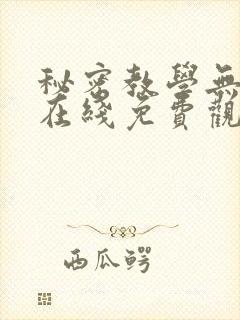 秘密教學無
在綫免費觀
西瓜鳄